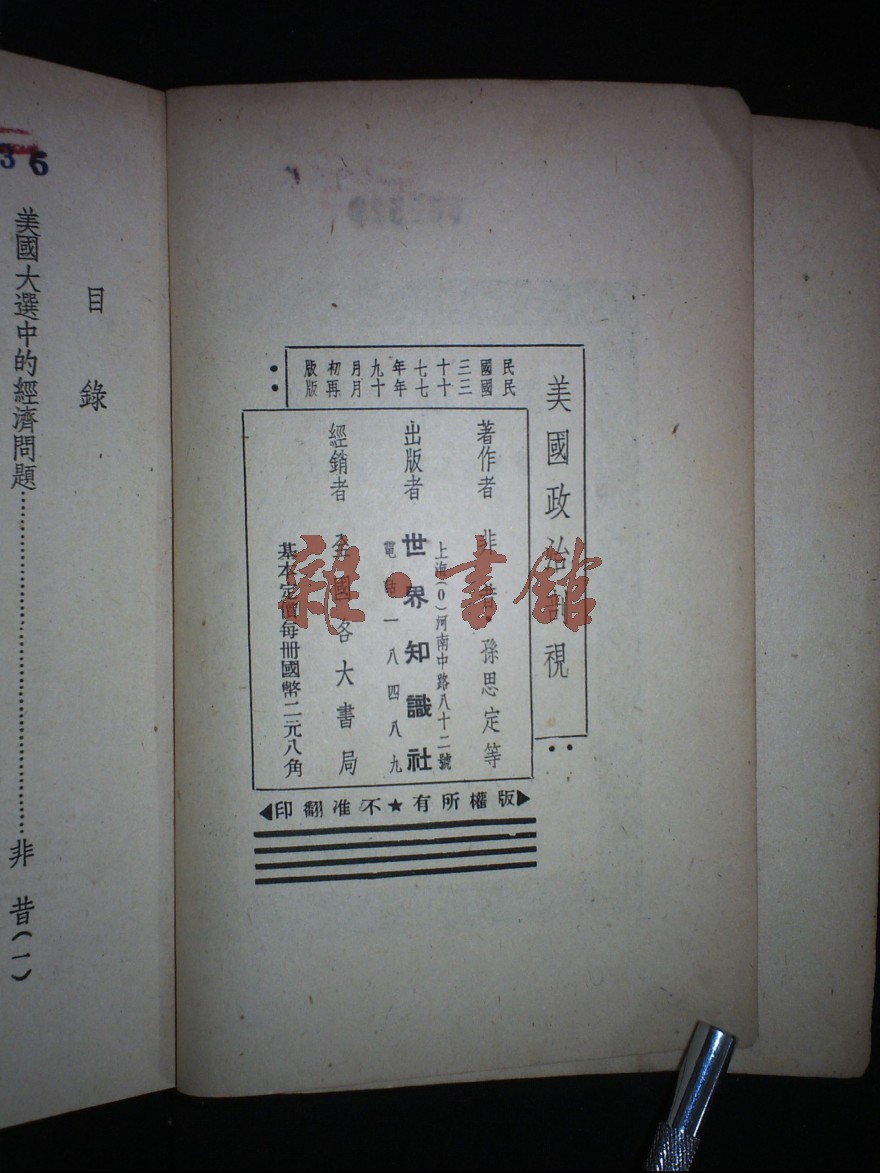 美國政治剖視
民國三十七年九月初版
民國三十七年十月再版
著作者 非昔·孫思定等
出版者 世界知識社
上海(0)河南中路八十二號
電話一八四八九
經銷者 全國各大書局
基本定價每冊國幣二元八角
版權所有★不准翻印
雜·書館
目錄
美國大選中的經濟問題……非昔(一)
36